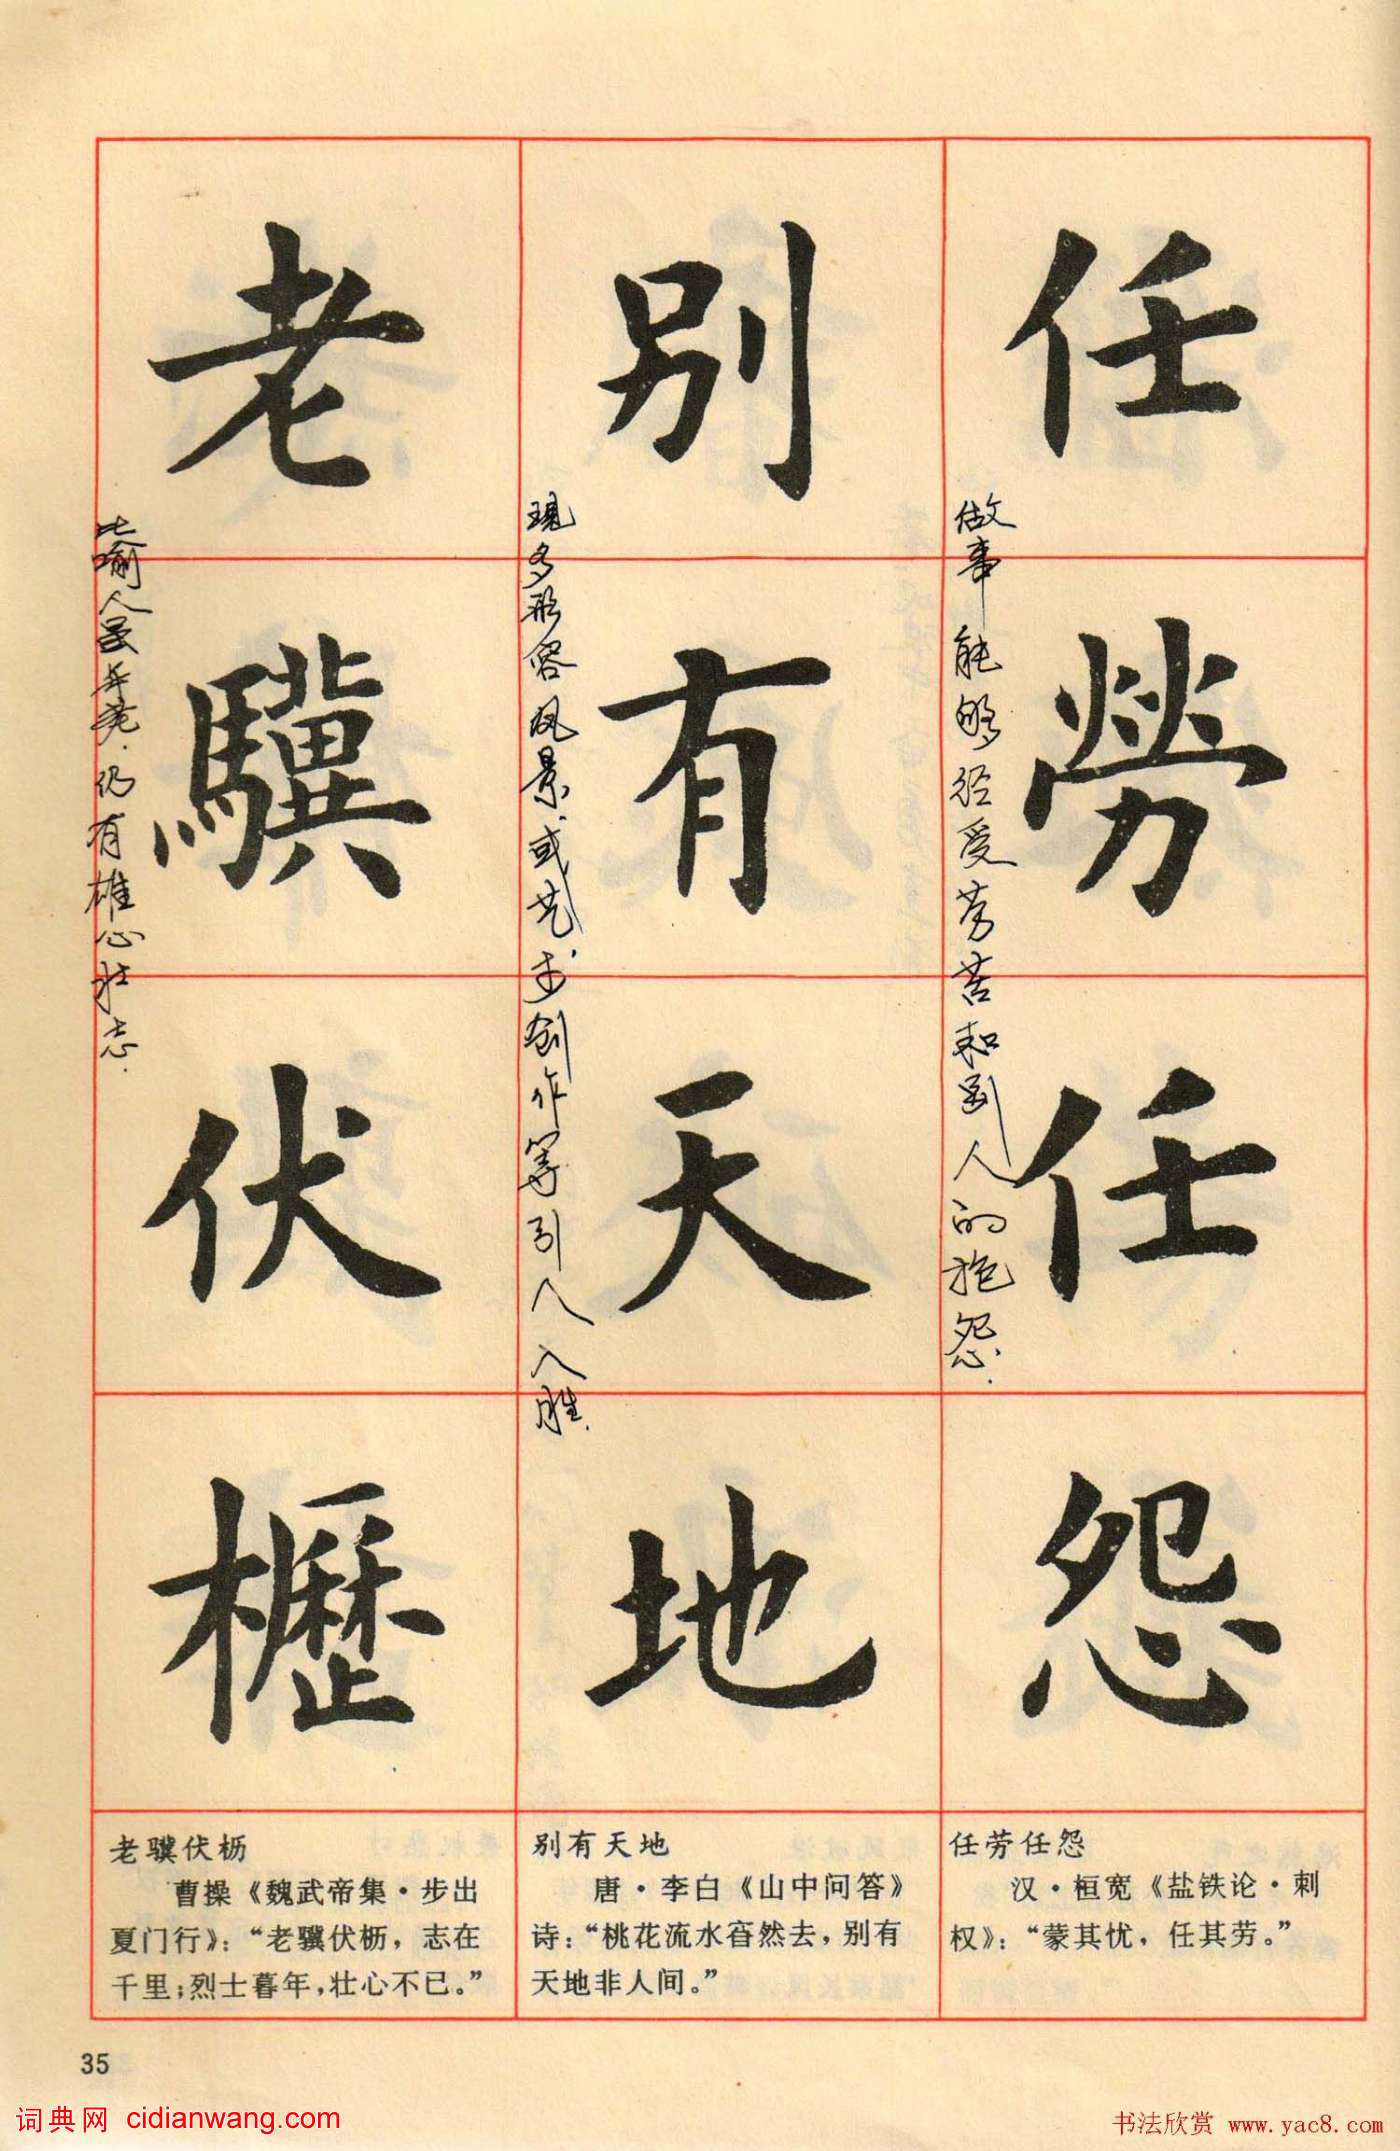 任勞任怨
做事能够经受劳苦和别人的抱怨.
别有天地
现多形容风景或艺术创作等引人入胜.
老驥伏櫪
比喻人虽年老.仍有雄心壮志.
任劳任怨
汉·桓宽《盐铁论·刺
权》：“蒙其忧，任其劳。”
别有天地
唐·李白《山中问答》
诗：“桃花流水窅然去，别有
天地非人间。”
老骥伏枥
曹操《魏武帝集·步出
夏门行》：“老骥伏枥，志在
千里；烈士暮年，壮心不已。”
35
词典网 cidianwang.com
书法欣赏 www.yac8.com